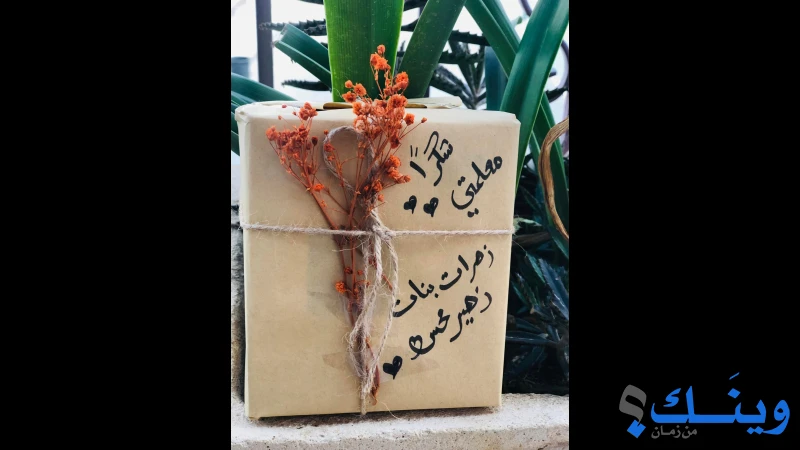 شكراً
معلمتي
زهرات بنات
زهير محسن
وينَـك؟
من زمان